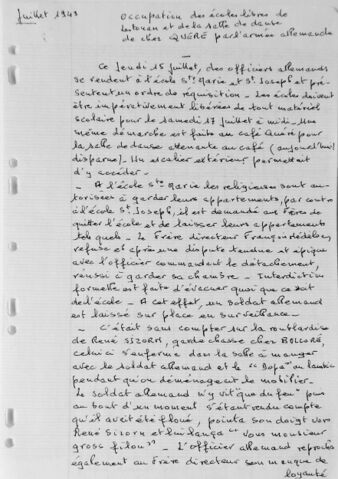 Juillet 1943
Occupation des écoles libres de
et de la salle de danse
de chez QUÉRÉ par l'armée allemande
Ce Jeudi 15 juillet, des officiers allemands
se rendent à l'école Ste Marie et St Joseph et pré-
sentent un ordre de réquisition - Les écoles doivent
être impérativement libérées de tout matériel
scolaire pour le samedi 17 juillet à midi - Une
même démarche est faite au café Quéré pour
la salle de danse attenante au café (aujourd'hui
disparue). Un escalier extérieur permettait
d'y accéder -
- A l'école Ste Marie les religieuses sont au-
torisées à garder leurs appartements, par contre
à l'école St Joseph, il est demandé aux Frères de
quitter l'école et de laisser leurs appartements
tels quels - Le Frère directeur François
refuse et après une dispute tendue et épique
avec l'officier commandant le détachement,
réussi à garder sa chambre - Interdiction
formelle est faite d'évacuer quoi que ce soit
de l'école - A cet effet, un soldat allemand
est laissé sur place en surveillance -
- C'était sans compter sur la roublardise
de René SIZORN, garde chasse chez BOLLORÉ,
celui ci s'enferme dans la salle à manger
avec le soldat allemand et le
pendant qu'on déménageait le mobilier.
Le soldat allemand n'y vit que du feu puis
au bout d'un moment s'étant rendu compte
qu'il avait été floué, pointa son doigt vers
René Sizorn et lui lança "Vous monsieur
gross filou" - L'officier allemand reprocha
également au Frère directeur son manque de
loyauté